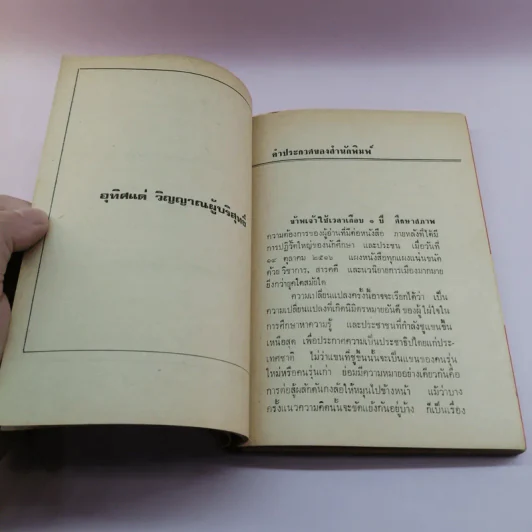 อุทิศแด่ วิญญาณผู้บริสุทธิ์
คำประกาศของสำนักพิมพ์
ข้าพเจ้าใช้เวลาเกือบ ๑ ปี ศึกษาสภาพ
ความต้องการของผู้อ่านที่มีต่อหนังสือ ภายหลังที่ได้มี
การปฏิวัติใหญ่ของนักศึกษา และประชาชน เมื่อวันที่
๑๔ ตุลาคม ๒๕๑๖ แผงหนังสือทุกแผงแน่นขนัด
ด้วยวิชาการ, สารคดี และนวนิยายการเมืองมากมาย
ยิ่งกว่ายุคใดสมัยใด
ความเปลี่ยนแปลงครั้งนี้อาจจะเรียกได้ว่า เป็น
ความเปลี่ยนแปลงที่เกิดนิมิตรหมายอันดี ของผู้ใฝ่ใจใน
การศึกษาหาความรู้ และประชาชนที่กำลังชูแขนขึ้น
เหนือสุด เพื่อประกาศความเป็นประชาธิปไตยแก่ประ-
เทศชาติ ไม่ว่าแขนที่ชูขึ้นนั้นจะเป็นแขนของคนรุ่น
ใหม่หรือคนรุ่นเก่า ย่อมมีความหมายอย่างเดียวกันคือ
การต่อสู้ผลักดันกงล้อให้หมุนไปข้างหน้า แม้ว่าบาง
ครั้งแนวความคิดนั้นจะขัดแย้งกันอยู่บ้าง ก็เป็นเรื่อง